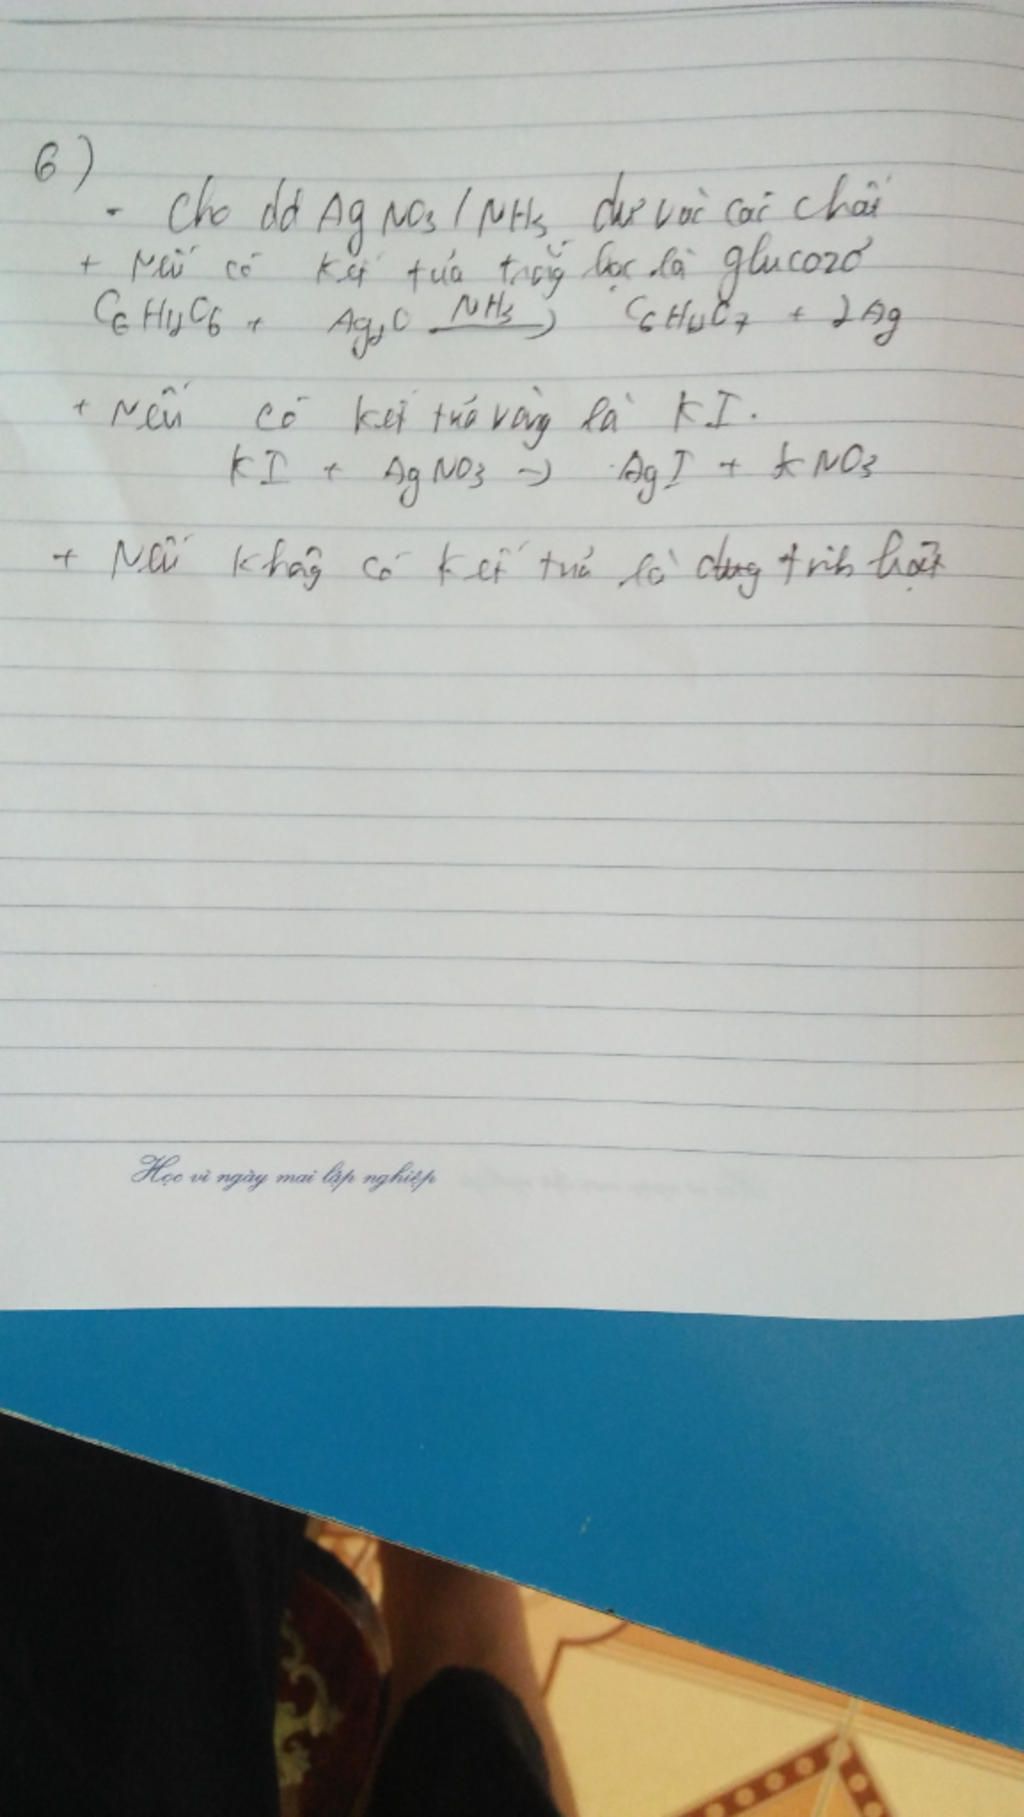 6)
- Cho dd AgNO3/NH3 dư vào các chất
+ Nếu có kết tủa trắng bạc là glucozơ
C6H12O6 + Ag2O NH3→ C6H12O7 + 2Ag
+ Nếu có kết tủa vàng là KI.
KI + AgNO3 → AgI + KNO3
+ Nếu không có kết tủa là tinh bột
Học vì ngày mai lập nghiệp